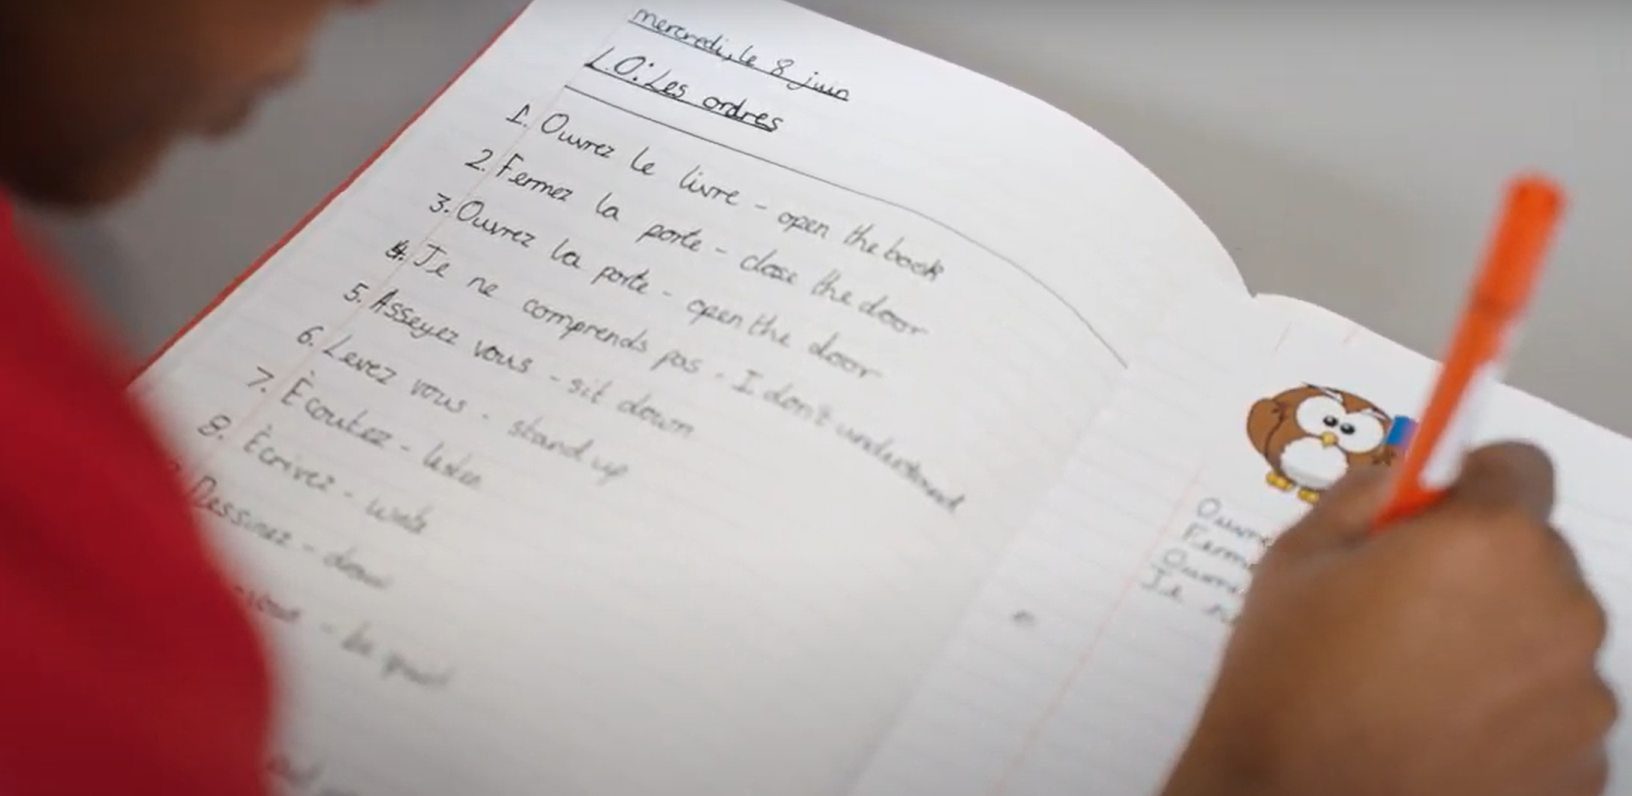 mercredi, le 8 juin
L.O: Les ordres
1. Ouvrez le livre - open the book
2. Fermez la porte - close the door
3. Ouvrez la porte - open the door
4. Je ne comprends pas - I don't understand
5. Asseyez vous - sit down
6. Levez vous - stand up
7. Ècoutez - listen
8. Ècrivez - write
Dessinez - draw
vous - be quiet
Je